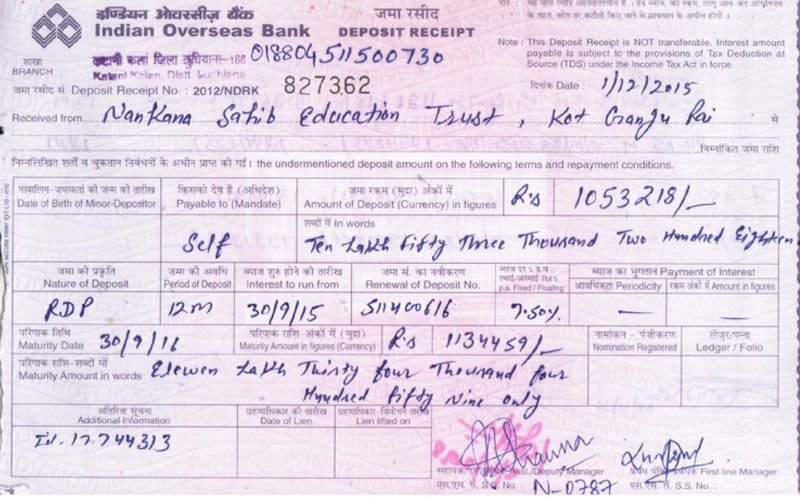 इण्डियन ओवरसीज़ बैंक
Indian Overseas Bank
जमा रसीद
DEPOSIT RECEIPT
शाखा
BRANCH
कटानी कलां जिला लुधियाना-
Katani Kalan, Distt Ludhiana
018804511500730
Note : This Deposit Receipt is NOT transferable. Interest amount
payable is subject to the provisions of Tax Deduction at
Source (TDS) under the Income Tax Act in force.
जमा रसीद सं. Deposit Receipt No. : 2012/NDRK 827362
दिनांक Date : 1/12/2015
Received from Nankana Sahib Education Trust, Kot Gangu Rai से
निम्नांकित जमा राशि
निम्नलिखित शर्तों व चुकतान निबंधनों के अधीन प्राप्त की गई। the undermentioned deposit amount on the following terms and repayment conditions.
नाबालिग-जमाकर्ता की जन्म की तारीख
Date of Birth of Minor-Depositor
किसको देय है (अधिदेश)
Payable to (Mandate)
जमा रकम (मुद्रा) अंकों में
Amount of Deposit (Currency) in figures
R's 1053218/-
Self
शब्दों में In words
Ten Lakh Fifty Three Thousand Two Hundred Eighteen
जमा की प्रकृति
Nature of Deposit
जमा की अवधि
Period of Deposit
ब्याज शुरु होने की तारीख
Interest to run from
जमा सं. का नवीकरण
Renewal of Deposit No.
p.a. Fixed / Floating
ब्याज का भुगतान Payment of Interest
आवधिकता Periodicity
रकम अंकों में Amount in figures
RDP
12m
30/9/15
511400616
7.50%
—
—
परिपाक तिथि
Maturity Date 30/9/16
परिपाक राशि-अंकों में (मुद्रा)
Maturity Amount in figures (Currency)
R's 1134459/-
नामांकन - पंजीकरण
Nomination Registered
लेज़र/पन्ना
Ledger / Folio
परिपाक राशि-शब्दों में
Maturity Amount in words Elewen Lakh Thirty four Thousand four
Hundred fifty Nine only
अतिरिक्त सूचना
Additional Information
ग्रहणाधिकार की तारीख
Date of Lien
ग्रहणाधिकार-विमोचन तारीख
Lien lifted on
Id. 12744313
Asst./Deputy Manager
First line Manager
एस.एस. सं. S.S. No. : N-0787
एस.एस. सं. S.S. No. :